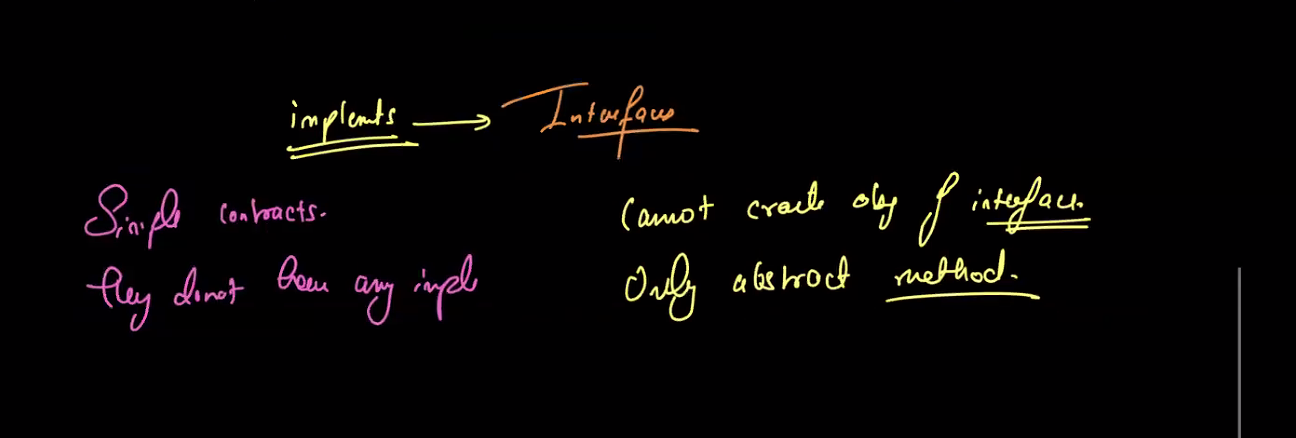 implemts → Interface
Simple contracts.
they donot have any imple
Cannot create obj of interface.
Only abstract method.